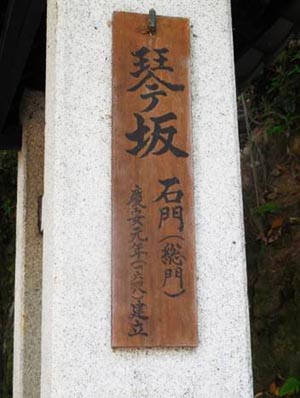 琴坂
石門(総門)
慶安元年(一六四八)建立